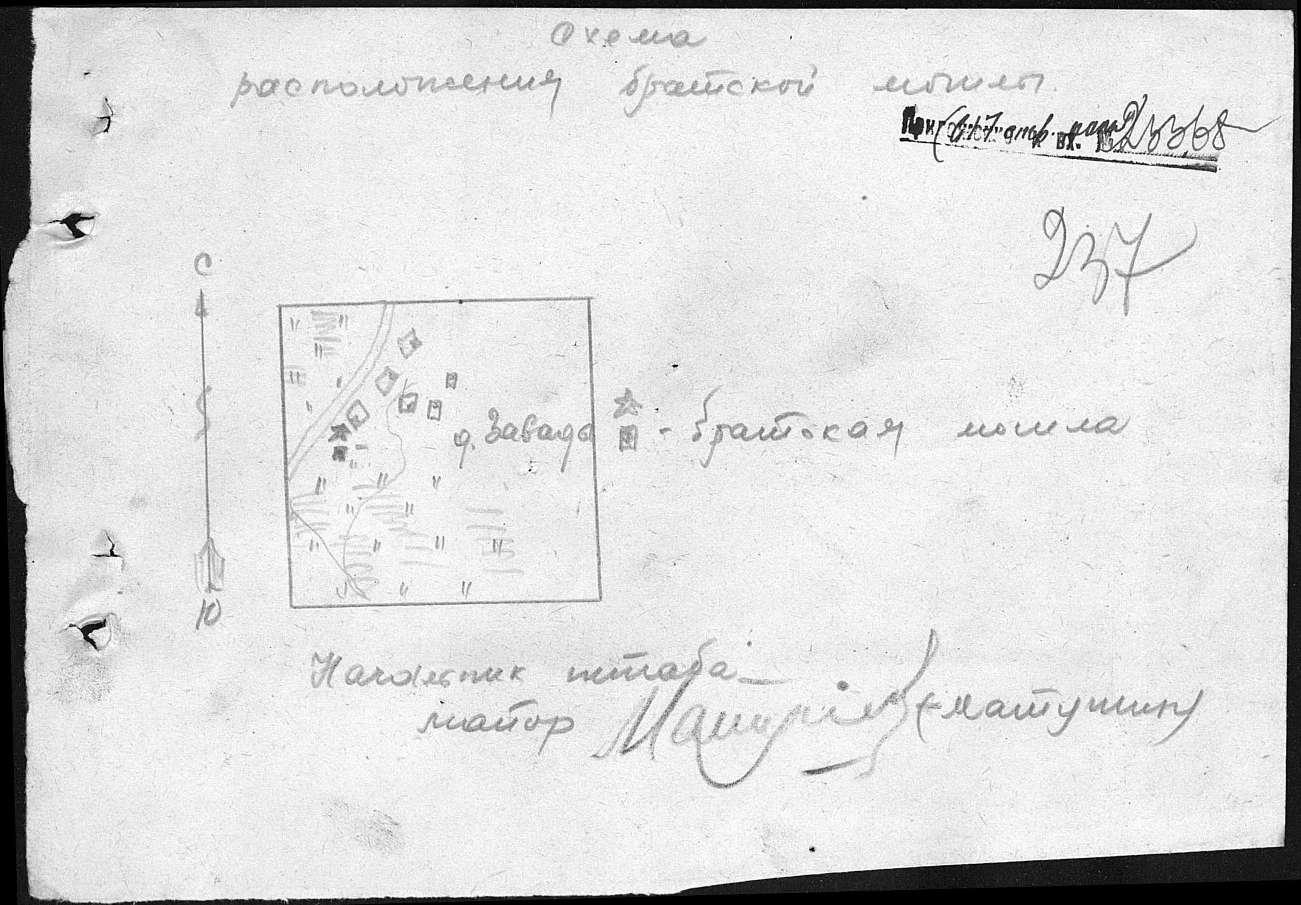 Схема
расположения братской могилы.
вх. № 23368
237
С
д. Завады
- братская могила
Ю
Начальник штаба
майор (Матушкин)